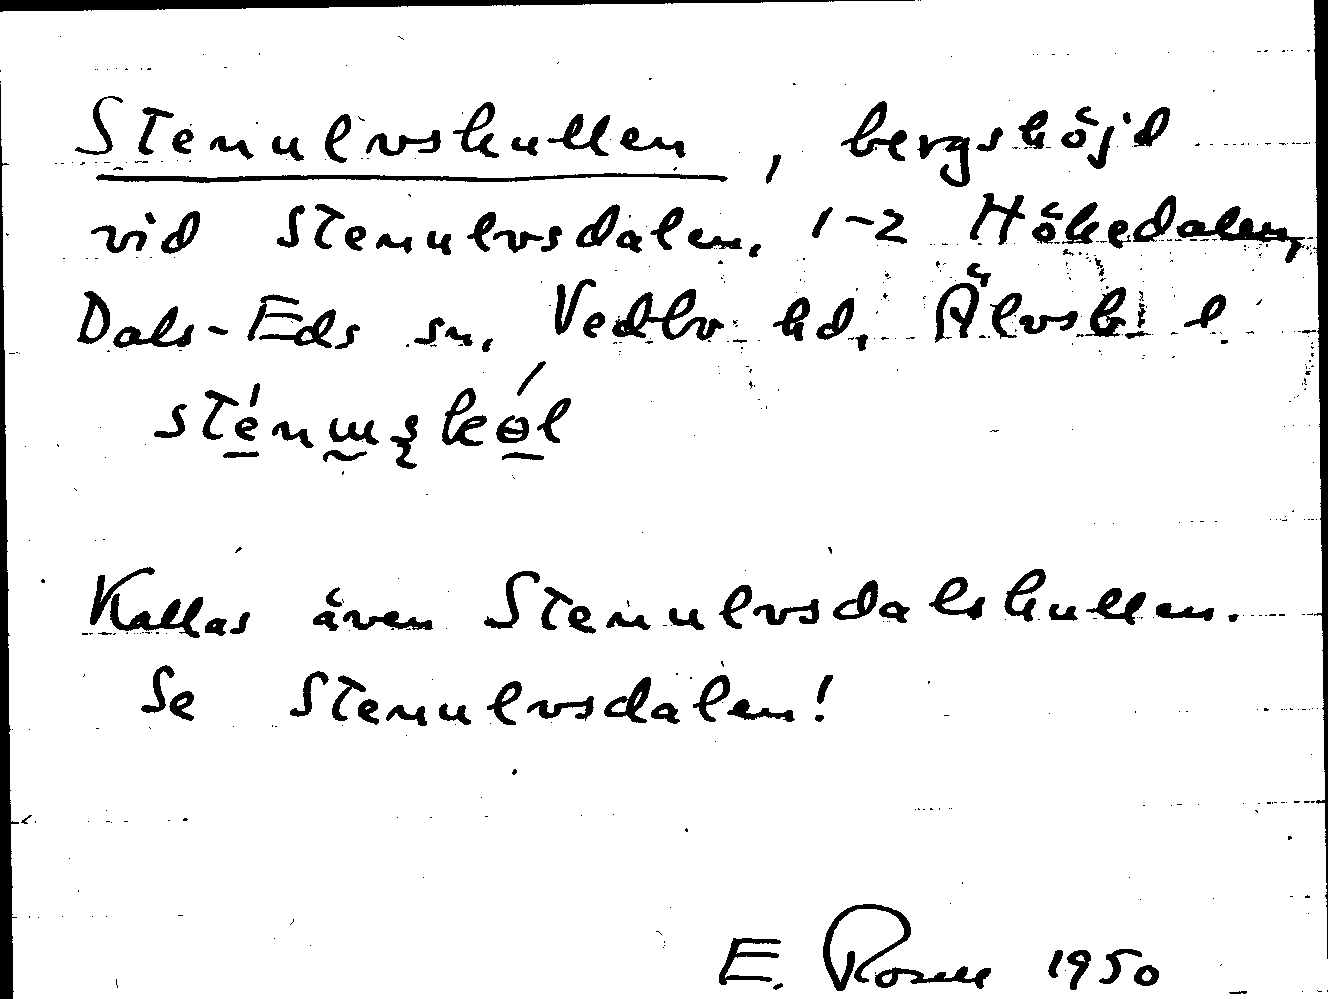 Stenulvskullen, bergshöjd
vid Stenulvsdalen, 1-2 Hökedalen,
Dals-Eds sn, Vedbo hd, Älvsb l
Kallas även Stenulvsdalskullen.
Se Stenulvsdalen!
E. Rosell 1950